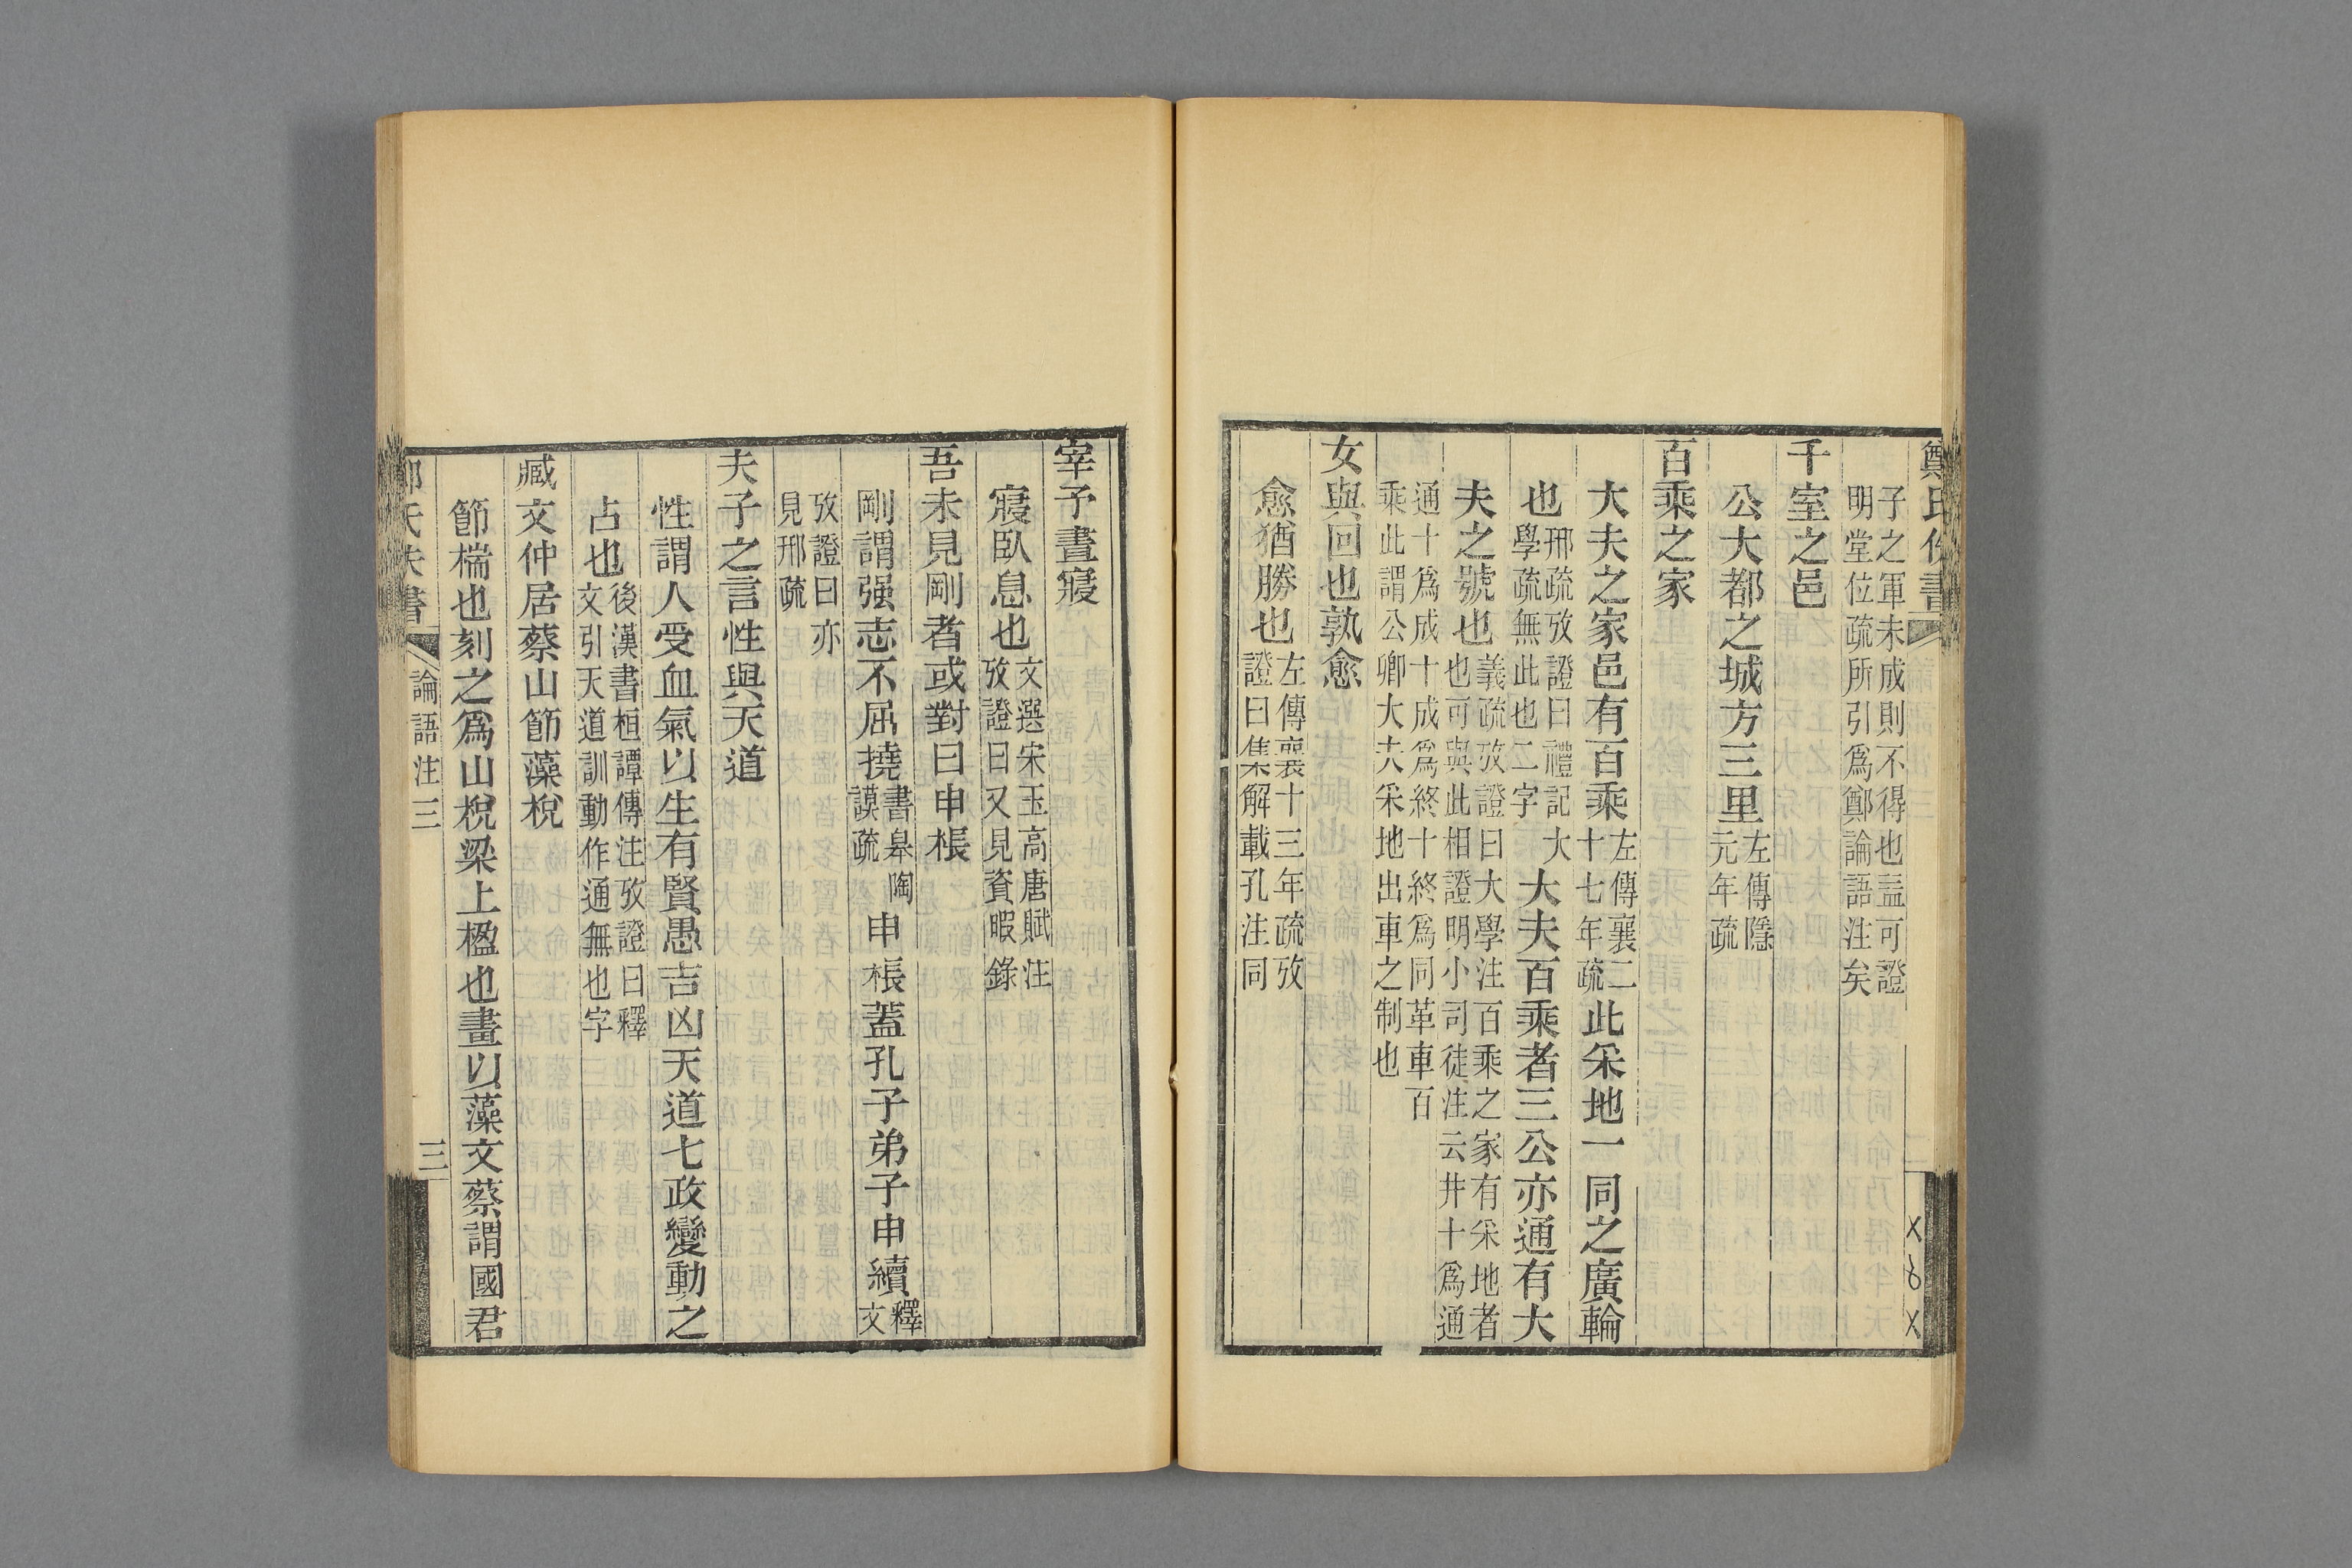 鄭氏佚書
子之軍未成則不得也盖可證
明堂位疏所引爲鄭論語注矣
千室之邑
公大都之城方三里左傳隱
元年疏
百乘之家
大夫之家邑有百乘左傳襄二
十七年疏此采地一同之廣輪
也邢疏攷證曰禮記大
學疏無此也二字大夫百乘者三公亦通有大
夫之號也義疏攷證曰大學注百乘之家有采地者
也可與此相證明小司徒注云井十爲通
通十爲成十成爲終十終爲同革車百
乘此謂公卿大夫采地出車之制也
女與回也孰愈
愈猶勝也左傳襄十三年疏攷
證曰集解載孔注同
宰予晝寢
寢臥息也文選宋玉高唐賦注
攷證曰又見資暇錄
吾未見剛者或對曰申棖
剛謂强志不屈撓書皋陶
謨疏申棖蓋孔子弟子申續釋
文
攷證曰亦
見邢疏
夫子之言性與天道
性謂人受血氣以生有賢愚吉凶天道七政變動之
占也後漢書桓譚傳注攷證曰釋
文引天道訓動作通無也字
臧文仲居蔡山節藻梲
節栭也刻之爲山梲梁上楹也畫以藻文蔡謂國君
氏佚書
論語注三
三